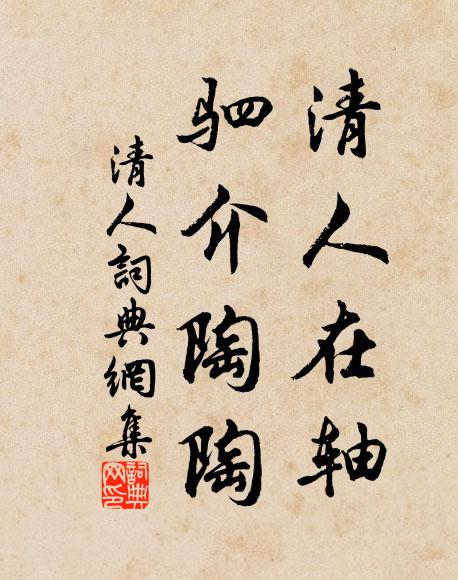 清人在轴
驷介陶陶
清人詞典網集
詞典网印